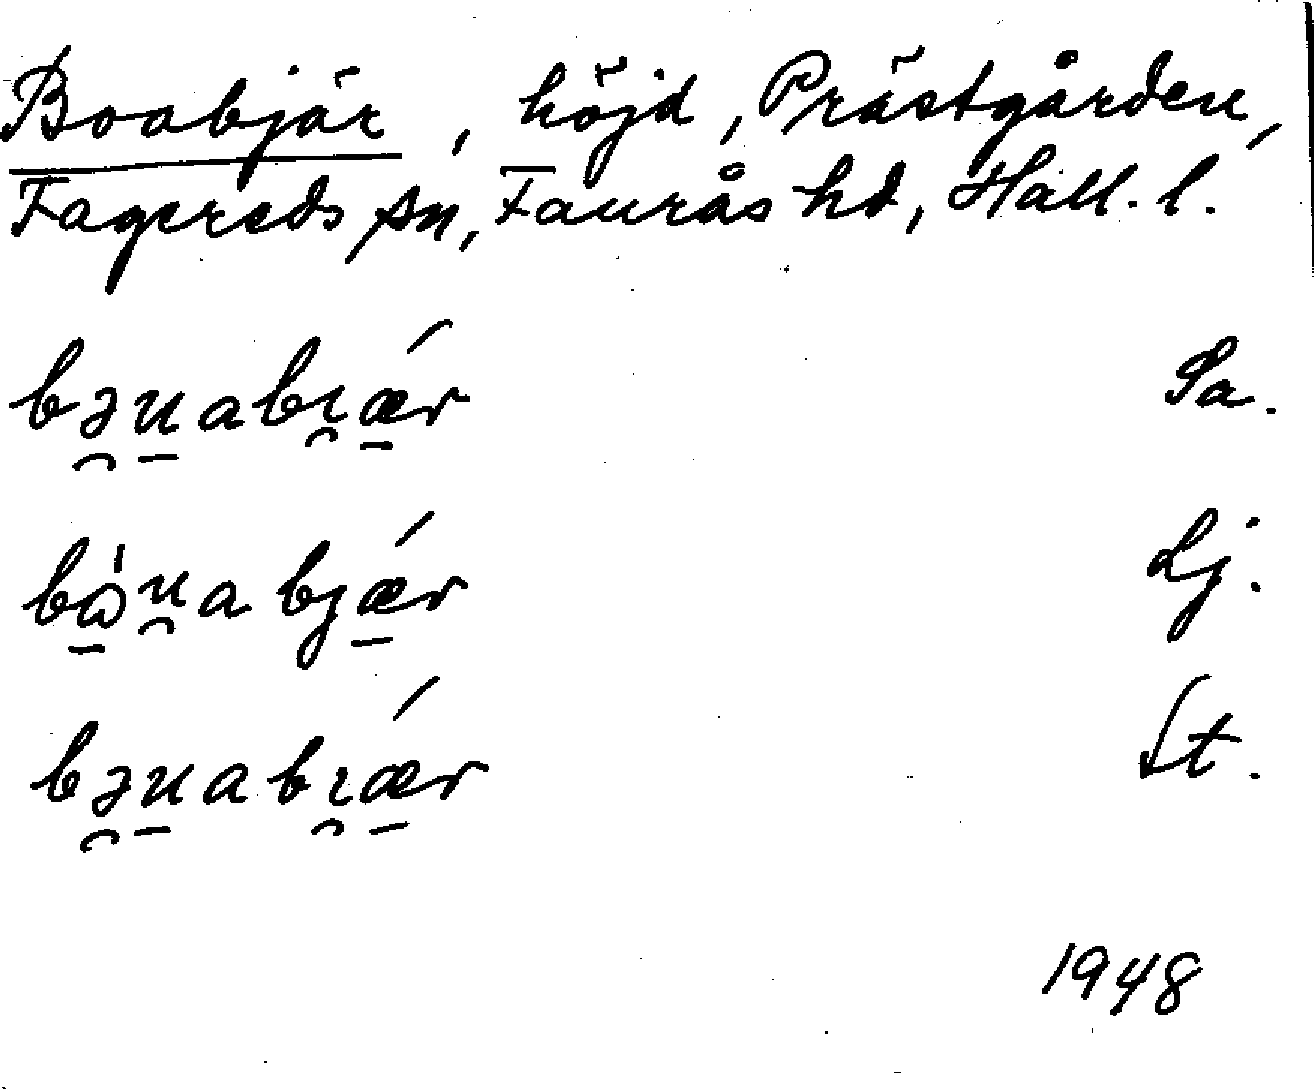 Boabjär, höjd, Prästgården,
Fagereds sn, Faurås hd, Hall. l.
bə̯u̱abɪ̯ǽ̱r Sa.
bɷ̱̀u̯abjǽ̱r Lj.
bə̯u̱abɪ̯ǽ̱r St.
1948